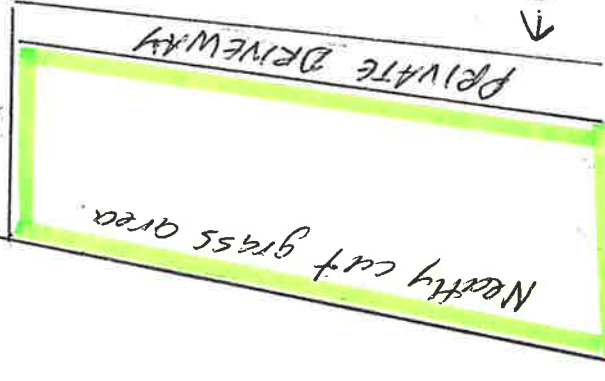 Neatly cut grass area.
PRIVATE DRIVEWAY